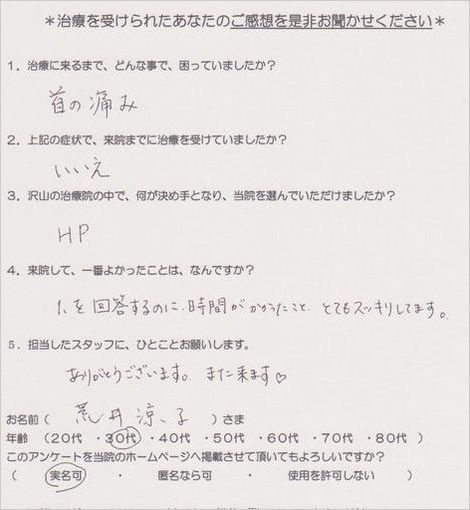 ＊治療を受けられたあなたのご感想を是非お聞かせください＊
1．治療に来るまで、どんな事で、困っていましたか？
首の痛み
2．上記の症状で、来院までに治療を受けていましたか？
いいえ
3．沢山の治療院の中で、何が決め手となり、当院を選んでいただけましたか？
HP
4．来院して、一番よかったことは、なんですか？
1、を回答するのに、時間がかかったこと、とてもスッキリしてます。
5．担当したスタッフに、ひとことお願いします。
ありがとうございます。また来ます♡
お名前（ 荒井涼子 ）さま
年齢 （20代 ・30代 ・40代 ・50代 ・60代 ・70代 ・80代 ）
このアンケートを当院のホームページへ掲載させて頂いてもよろしいですか？
（ 実名可 ・ 匿名なら可 ・ 使用を許可しない ）